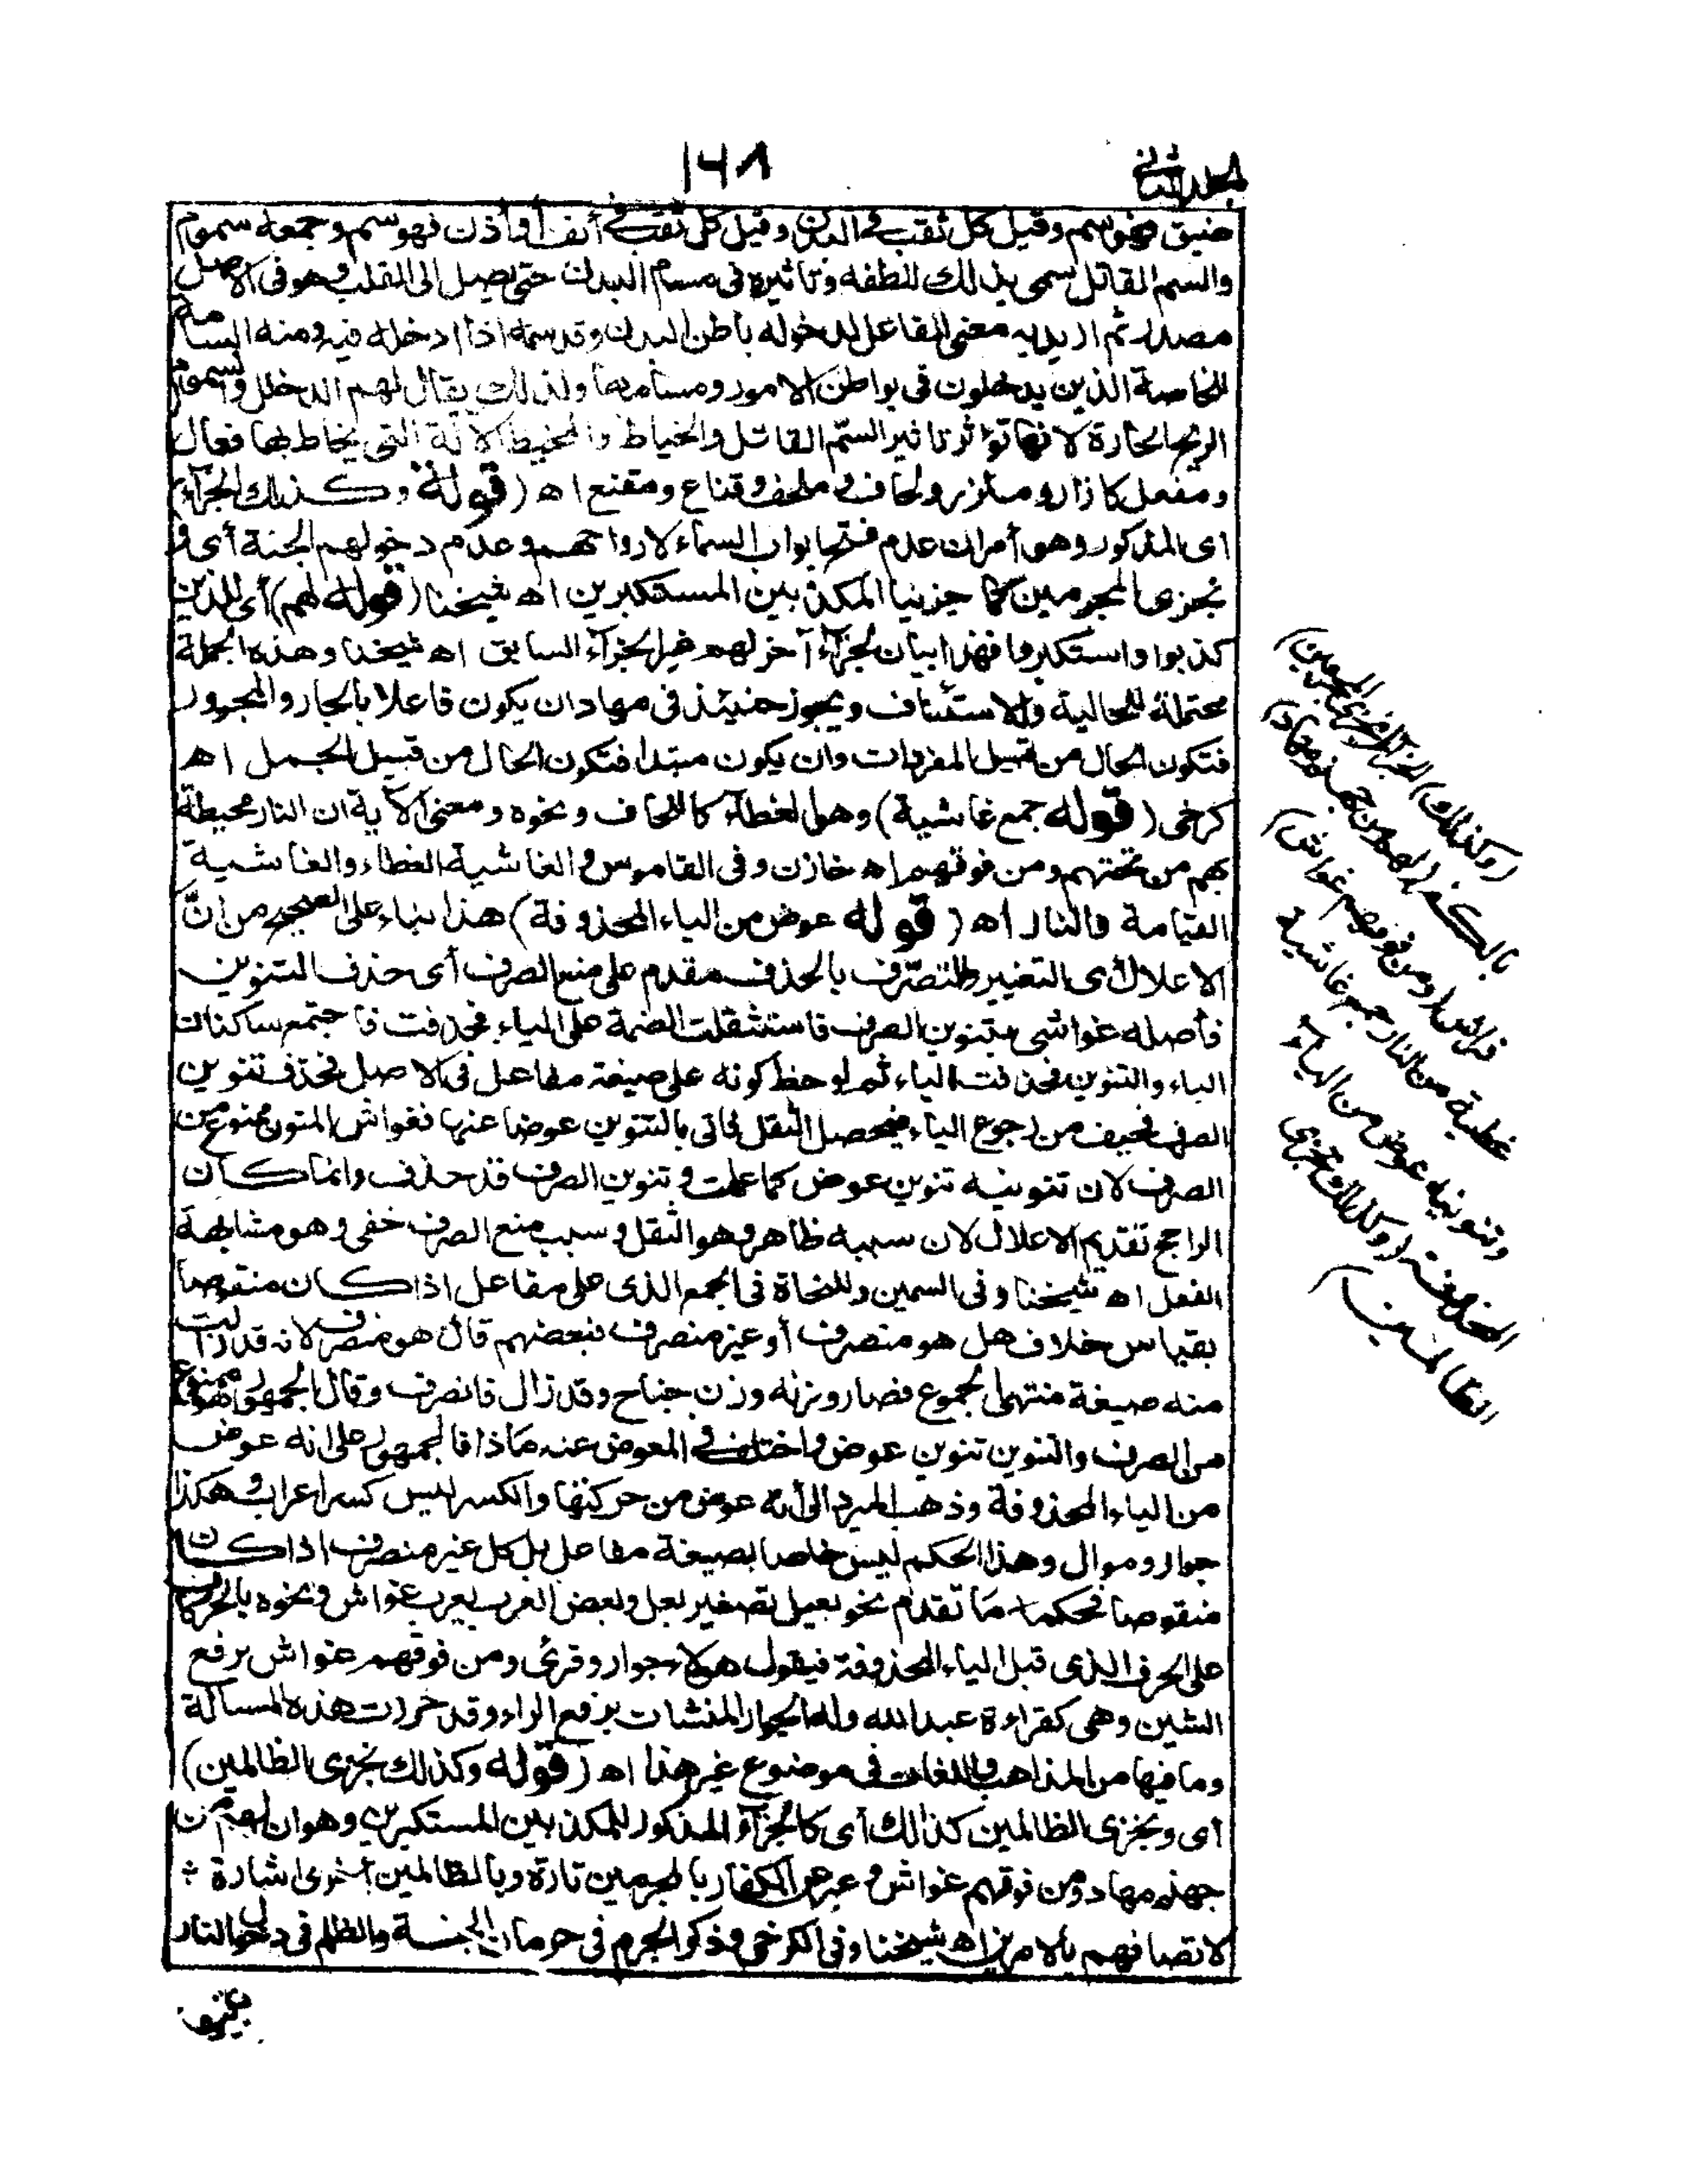 المجلد الثانى
١٦٨
ضيق فهو سم وقيل كل ثقب فى البدن وقيل كل ثقب فى أنف أو أذن فهو سم وجمعه سموم
والسم القاتل سمى بذلك للطفه وتاثيره فى مسام البدن حتى يصل الى القلب وهو فى الاصل
مصدر ثم اريد به معنى الفاعل لدخوله باطن البدن وقد سمه اذا ادخله فيه ومنه السامة
للخاصة الذين يدخلون فى بواطن الامور ومسامها ولذلك يقال لهم الدخلل والسموم
الريح الحارة لانها تؤثر تاثير السم القاتل والخياط والمخيط الالة التى يخاط بها فعال
ومفعل كازار ومئزر ولحاف وملحف وقناع ومقنع اه (قوله وكذلك الجزآء)
اى المذكور وهو أمران عدم فتح ابواب السماء لارواحهم وعدم دخولهم الجنة أى و
نجزى المجرمين كما جزينا المكذبين المستكبرين اه شيخنا (قوله لهم) أى للذين
كذبوا واستكبروا فهذا بيان لجزآء آخر لهم غير الجزآء السابق اه شيخنا وهذه الجملة
محتملة للحالية والاستئناف ويجوز حينئذ فى مهاد ان يكون فاعلا بالجار والمجرور
فتكون الحال من قبيل المفردات وان يكون مبتدا فتكون الحال من قبيل الجمل اه
كرخى (قوله جمع غاشية) وهى الغطآء كاللحاف ونحوه ومعنى الآية ان النار محيطة
بهم من تحتهم ومن فوقهم اه خازن وفى القاموس والغاشية الغطاء والغاشية
القيامة والنار اه (قوله عوض من الياء المحذوفة) هذا بناء على الصحيح من انّ
الاعلال أى التغيير والتصرّف بالحذف مقدم على منع الصرف أى حذف التنوين
فأصله غواشى بتنوين الصرف فاستثقلت الضمة على الياء فحذفت فاجتمع ساكنان
الياء والتنوين فحذفت الياء ثم لوحظ كونه على صيغة مفاعل فى الاصل فحذف تنوين
الصرف فخيف من رجوع الياء فيحصل الثقل فاتى بالتنوين عوضا عنها فغواش المنون ممنوع من
الصرف لان تنوينه تنوين عوض كما علمت وتنوين الصرف قد حذف وانما كان
الراجح تقديم الاعلال لان سببه ظاهر وهو الثقل وسبب منع الصرف خفى وهو مشابهة
الفعل اه شيخنا وفى السمين وللنحاة فى الجمع الذى على مفاعل اذا كان منقوصا
بقياس خلاف هل هو منصرف أو غير منصرف فبعضهم قال هو منصرف لانه قد زالت
منه صيغة منتهى الجموع فصار وزنه وزن جناح وقد زال فانصرف وقال الجمهور هو ممنوع
من الصرف والتنوين تنوين عوض واختلف فى المعوض عنه ماذا فالجمهور على انه عوض
من الياء المحذوفة وذهب المبرد الى أنه عوض من حركتها والكسر ليس كسر اعراب وهكذا
جوار وموال وهذا الحكم ليس خاصا بصيغة مفاعل بل كل غير منصرف اذا كان
منقوصا فحكمه ما تقدم نحو يعيل تصغير يعل وبعض العرب يعرب غواش ونحوه بالحركات
على الحرف الذى قبل الياء المحذوفة فيقول هؤلاء جوار وقرئ ومن فوقهم غواش برفع
الشين وهى كقراءة عبد الله وله الجوار المنشات برفع الراء وقد حررت هذه المسألة
وما فيها من المذاهب واللغات فى موضوع غير هذا اه (قوله وكذلك نجزى الظالمين)
أى ونجزى الظالمين كذالك أى كالجزآء المذكور للمكذبين المستكبرين وهو ان لهم من
جهنم مهاد ومن فوقهم غواش وعبر عن الكفار بالمجرمين تارة وبالظالمين أخرى اشارة
لاتصافهم بالامرين اه شيخنا وفى الكرخى وذكر الجرم فى حرمان الجنة والظلم فى دخول النار
(وكذلك) الجزآء (نجزى المجرمين)
بالكفر (لهم من جهنم مهاد)
فراش (ومن فوقهم غواش)
غطية من النار جمع غاشية
وتنوينه عوض من الياء
المحذوفة (وكذلك نجزى
الظالمين)